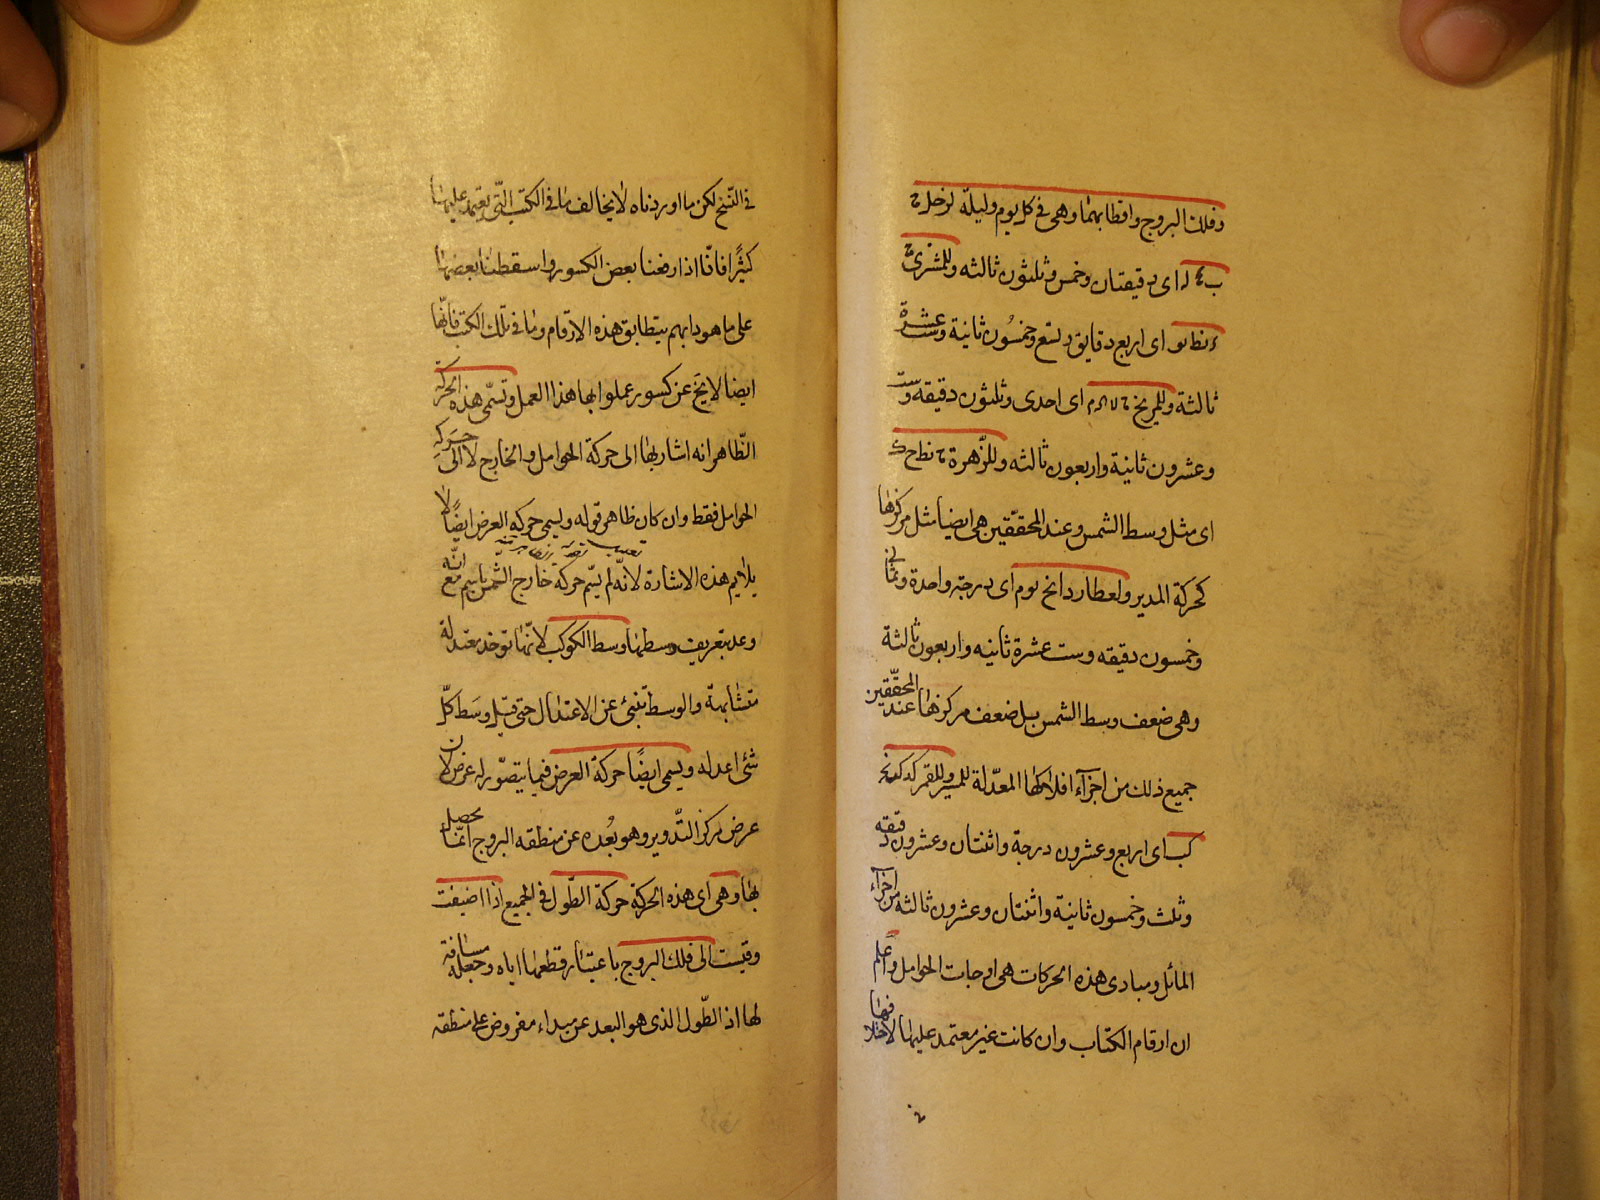 وفلك البروج واقطابهما وهى فى كل يوم وليلة لزحل ح
ب له اى دقيقتان وخمس وثلثون ثالثه وللمشترى ح
د نط يو اى اربع دقايق وتسع وخمسون ثانية وست عشرة
ثالثة وللمريخ اى احدى وثلثون دقيقه وست
وعشرون ثانية واربعون ثالثه وللزّهرة ح نط ح ك
اى مثل وسط الشمس وعند المحقّقين هى ايضا مثل مركزها
كحركة المدير ولعطارد ا نح يو م اى درجة واحدة وثمانى
وخمسون دقيقه وست عشرة ثانيه واربعون ثالثة
وهى ضعف وسط الشمس بل ضعف مركزها عند المحقّقين
جميع ذلك من اجزآء افلاكها المعدّلة للمسير وللقمر كد كب نج
كب اى اربع وعشرون درجة واثنتان وعشرون دقيقه
وثلث وخمسون ثانية واثنتان وعشرون ثالثه من اجزآء
المائل ومبادى هذه الحركات هى اوجات الحوامل واعلم
ان ارقام الكتاب وان كانت غير معتمد عليها لاختلافها
فى النّسخ لكن ما اوردناه لا يخالف ما فى الكتب الّتى يعتمد عليها
كثيرًا فانّا اذا رفعنا بعض الكسور واسقطنا بعضها
على ما هو دابهم يتطابق هذه الارقام وما فى تلك الكتب فانّها
ايضا لا يخ عن كسور عملوا بها هذا العمل وتسمّى هذه الحركة
الظّاهر انه اشار بها الى حركة الحوامل والخارج لا الى حركة
الحوامل فقط وان كان ظاهر قوله ويسمى حركة العرض ايضًا لا
يلايم هذه الاشارة لانّه لم يسّم حركة خارج الشّمس باسم مع انّه
وعد بتعريف وسطها وسط الكوكب لانّها توخذ معتدلة
متشابهة والوسط تنبئ عن الاعتدال حتى قيل وسط كلّ
شئ اعدله ويسمى ايضًا حركة العرض فيما يتصوّر له عرض لان
عرض مركز التّدوير وهو بُعده عن منطقه البروج انّما يحصل
بها وهى اى هذه الحركة حركة الطّول فى الجميع اذا اضيفت
وقيست الى فلك البروج باعتبار قطعها اياه وجعله مسافة
لها اذ الطّول الذى هو البعد عن مبداء مفروض على منطقه